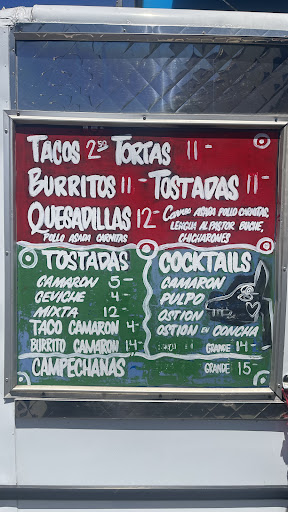 TACOS 2.50 TORTAS 11-
BURRITOS 11- TOSTADAS 11-
QUESADILLAS 12- CARNES ASADA POLLO CARNITAS,
LENGUA AL PASTOR BUCHE,
POLLO ASADA CARNITAS CHICHARONES
TOSTADAS
CAMARON 5-
CEVICHE 4-
MIXTA 12-
TACO CAMARON 4-
BURRITO CAMARON 14-
CAMPECHANAS
COCKTAILS
CAMARON
PULPO
OSTION
OSTION EN CONCHA
GRANDE 14-
GRANDE 15-